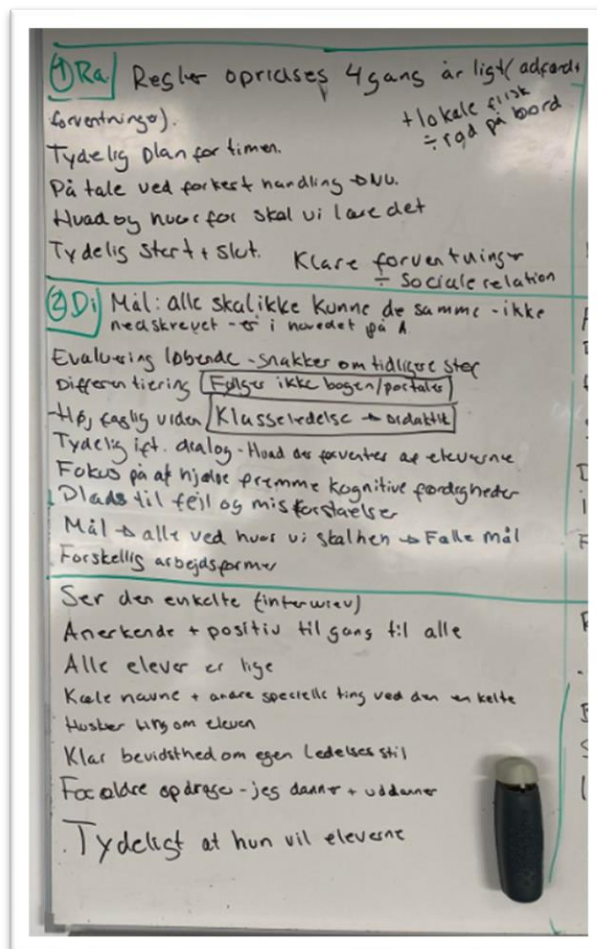 ① Ra. Regler opridses 4 gang årligt (adfærd +
forventninger).
+ lokale frisk
÷ rod på bord
Tydelig plan for timen.
På tale ved forkert handling → NU.
Hvad og hvorfor skal vi lave det
Tydelig start + slut.
Klare forventninger
÷ Sociale relation
② Di Mål: alle skal ikke kunne de samme - ikke
nedskrevet - er i hovedet på A
Evaluering løbende - snakker om tidligere stof
Differentiering Følger ikke bogen/portaler
- Høj faglig viden Klasseledelse → didaktik
Tydelig ift. dialog - Hvad der forventes af eleverne
Fokus på at hjælpe fremme kognitive færdigheder
Plads til fejl og misforståelser
Mål → alle ved hvor vi skal hen → Fælle mål
Forskellig arbejdsformer
Ser den enkelte (interwiev)
Anerkende + positiv tilgang til alle
Alle elever er lige
Kæle navne + andre specielle ting ved den enkelte
Husker ting om eleven
Klar bevidsthed om egen Ledelses stil
Forældre opdrager - jeg danner + uddanner
Tydeligt at hun vil eleverne